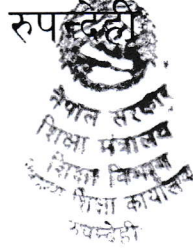 रुपन्देही
नेपाल सरकार
शिक्षा मन्त्रालय
शिक्षा विभाग
शिक्षा कार्यालय
रुपन्देही